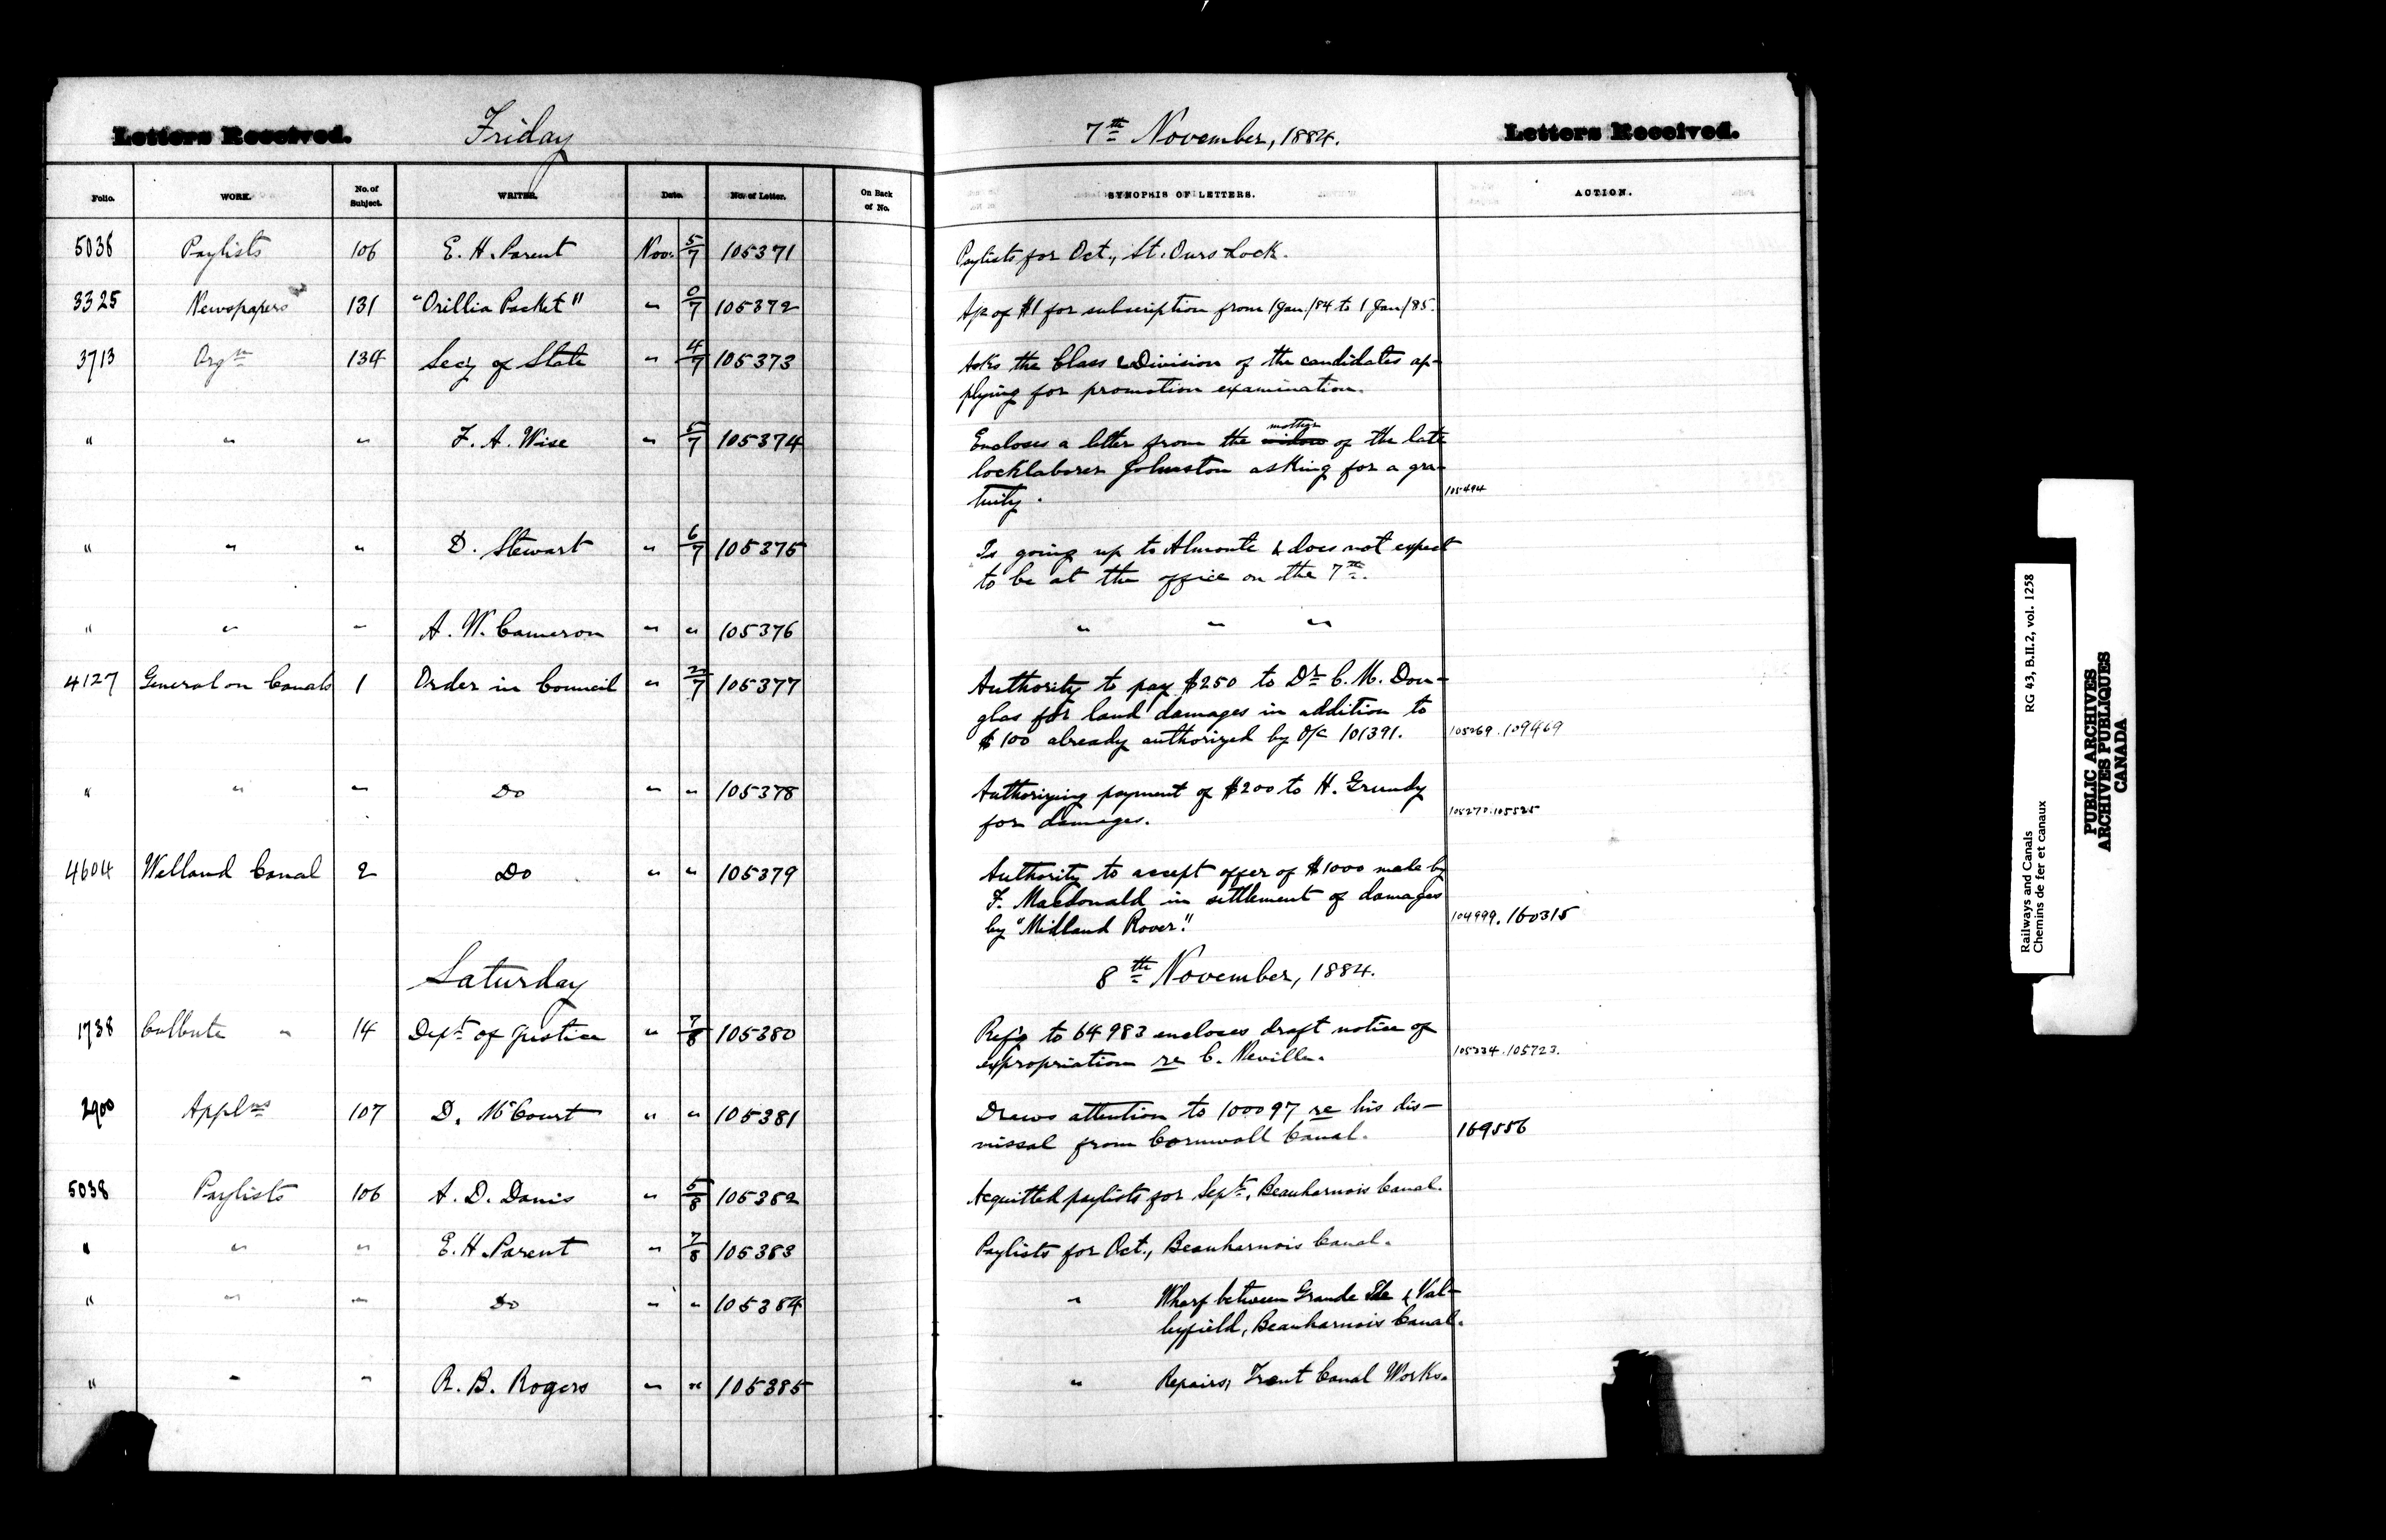 Letters Received. Friday 7th November, 1884. Letters Received.
Folio. WORK. No. of Subject. WRITER. Date. No. of Letter. On Back of No. SYNOPSIS OF LETTERS. ACTION.
5038 Paylists 106 E. H. Parent Nov. 5/7 105371 Paylists for Oct., St. Ours Lock.
3325 Newspapers 131 "Orillia Packet" " 0/7 105372 A/c of $1 for subscription from 1 Jan./84 to 1 Jan/85.
3713 Orgn 134 Secy of State " 4/7 105373 Asks the Class & Division of the candidates ap-
plying for promotion examination.
" " " F. A. Wise " 5/7 105374 Encloses a letter from the widow mother of the late
locklaborer Johnston asking for a gra-
tuity. 105494
" " " D. Stewart " 6/7 105375 Is going up to Almonte & does not expect
to be at the office on the 7th.
" " " A. W. Cameron " " 105376 " " "
4127 General on Canals 1 Order in Council " 2/7 105377 Authority to pay $250 to Dr C. M. Dou-
glas for land damages in addition to
$100 already authorized by O/C 101391. 105269. 109469
" " " Do " " 105378 Authorizing payment of $200 to H. Grundy
for damages. 105270.105525
4604 Welland Canal 2 Do " " 105379 Authority to accept offer of $1000 made by
F. Macdonald in settlement of damages
by "Midland Rover". 104999. 160315
Saturday 8th November, 1884.
1738 Culbute " 14 Dept of Justice " 7/8 105380 Ref'g to 64983 encloses draft notice of
expropriation re C. Neville. 105334.105723.
2900 Applns 107 D. McCourt " " 105381 Draws attention to 100097 re his dis-
missal from Cornwall Canal. 169556
5038 Paylists 106 A. D. Danis " 5/8 105382 Acquitted paylists for Sept., Beauharnois Canal.
" " " E. H. Parent " 7/8 105383 Paylists for Oct., Beauharnois Canal.
" " " Do " " 105384 " Wharf between Grande Ile & Val-
leyfield, Beauharnois Canal.
" " " R. B. Rogers " " 105385 " Repairs, Trent Canal Works.
Railways and Canals RG 43, B.II.2, vol. 1258
Chemins de fer et canaux
PUBLIC ARCHIVES
ARCHIVES PUBLIQUES
CANADA